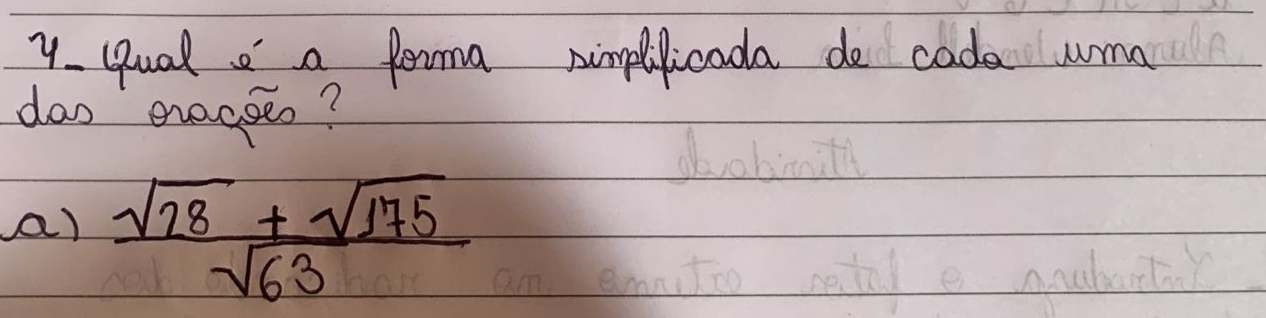 4- Qual é a forma simplificada de cada uma
das orações?
a) √28 + √175
√63